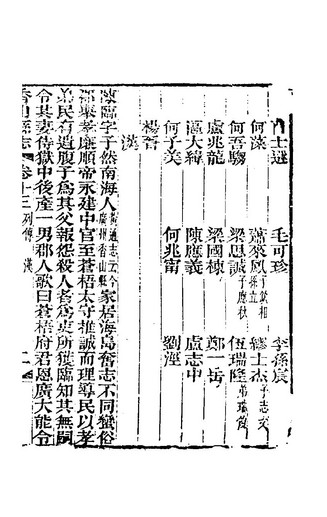 毛可珍 李孫宸
何藻 蕭來鳳
何吾騶 梁思誠 伍瑞隆
盧兆龍 梁國棟 鄭一岳
區大緯 陳應義 盧志中
何子美 何兆甯 劉涇
楊晉
漢
陳臨字子然南海人家居海島奮志不同蠻俗
郡舉孝廉順帝永建中官至蒼梧太守推誠而理導民以孝
弟民有遺腹子爲其父報怨殺人者爲吏所獲臨知其無嗣
令其妻侍獄中後產一男郡人歌曰蒼梧府君恩廣大能令
香山縣志 卷十三 列傳 漢 一